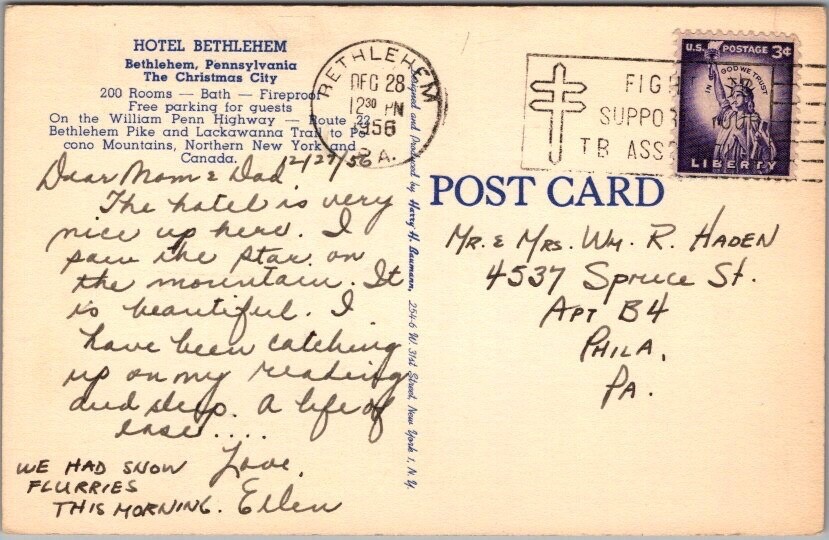 HOTEL BETHLEHEM
Bethlehem, Pennsylvania
The Christmas City
200 Rooms — Bath — Fireproof
Free parking for guests
On the William Penn Highway — Route 22
Bethlehem Pike and Lackawanna Trail to Po-
cono Mountains, Northern New York and
Canada.
12/27/56
Dear Mom & Dad,
The hotel is very
nice up here. I
saw the star on
the mountain. It
is beautiful. I
have been catching
up on my reading
and sleep. A life of
ease....
Love,
Ellen
WE HAD SNOW
FLURRIES
THIS MORNING.
Designed and Produced by Harry H. Baumann, 254-6 W. 31st Street, New York 1, N.Y.
BETHLEHEM
DEC 28
12 30 PM
1956
PA.
FIG
SUPPO
TB ASS
U.S. POSTAGE 3¢
IN GOD WE TRUST
LIBERTY
POST CARD
MR. & MRS. WM. R. HADEN
4537 Spruce St.
APT B4
PHILA,
PA.